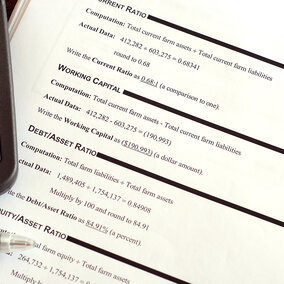 CURRENT RATIO
Computation: Total current farm assets ÷ Total current farm liabilities
Actual Data: 412,282 ÷ 603,275 = 0.68341
round to 0.68
Write the Current Ratio as 0.68:1 (a comparison to one).
WORKING CAPITAL
Computation: Total current farm assets - Total current farm liabilities
Actual Data: 412,282 - 603,275 = (190,993)
Write the Working Capital as ($190,993) (a dollar amount).
DEBT/ASSET RATIO
Computation: Total farm liabilities ÷ Total farm assets
Actual Data: 1,489,405 ÷ 1,754,137 = 0.84908
Multiply by 100 and round to 84.91
the Debt/Asset Ratio as 84.91% (a percent).
EQUITY/ASSET RATIO
farm equity ÷ Total farm assets
264,732 ÷ 1,754,137 =
Multiply